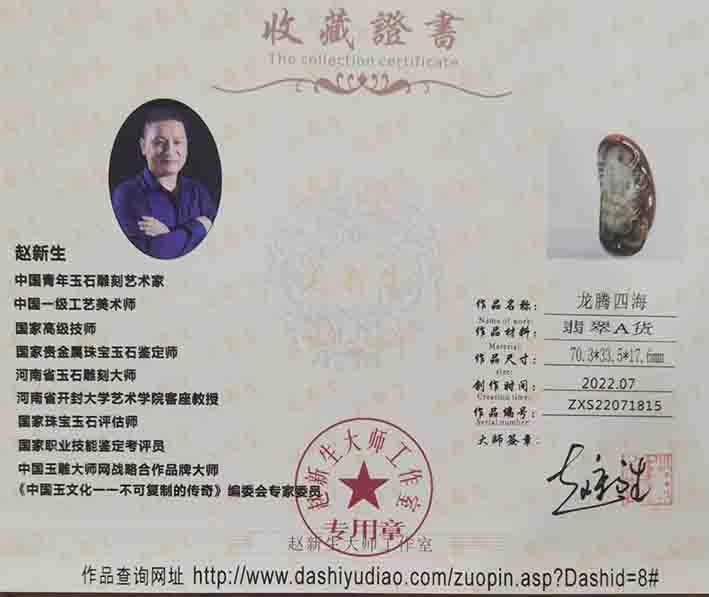 收藏證書
The collection certificate
赵新生
中国青年玉石雕刻艺术家
中国一级工艺美术师
国家高级技师
国家贵金属珠宝玉石鉴定师
河南省玉石雕刻大师
河南省开封大学艺术学院客座教授
国家珠宝玉石评估师
国家职业技能鉴定考评员
中国玉雕大师网战略合作品牌大师
《中国玉文化一一不可复制的传奇》编委会专家委员
作品名称: 龙腾四海
Name of work:
作品材料: 翡翠A货
Material:
作品尺寸: 70.3*33.5*17.6mm
size:
创作时间: 2022.07
Creation time:
作品编号: ZXS22071815
Serial number:
大师签章:
赵新生大师工作室
专用章
赵新生大师工作室
作品查询网址 http://www.dashiyudiao.com/zuopin.asp?Dashid=8#